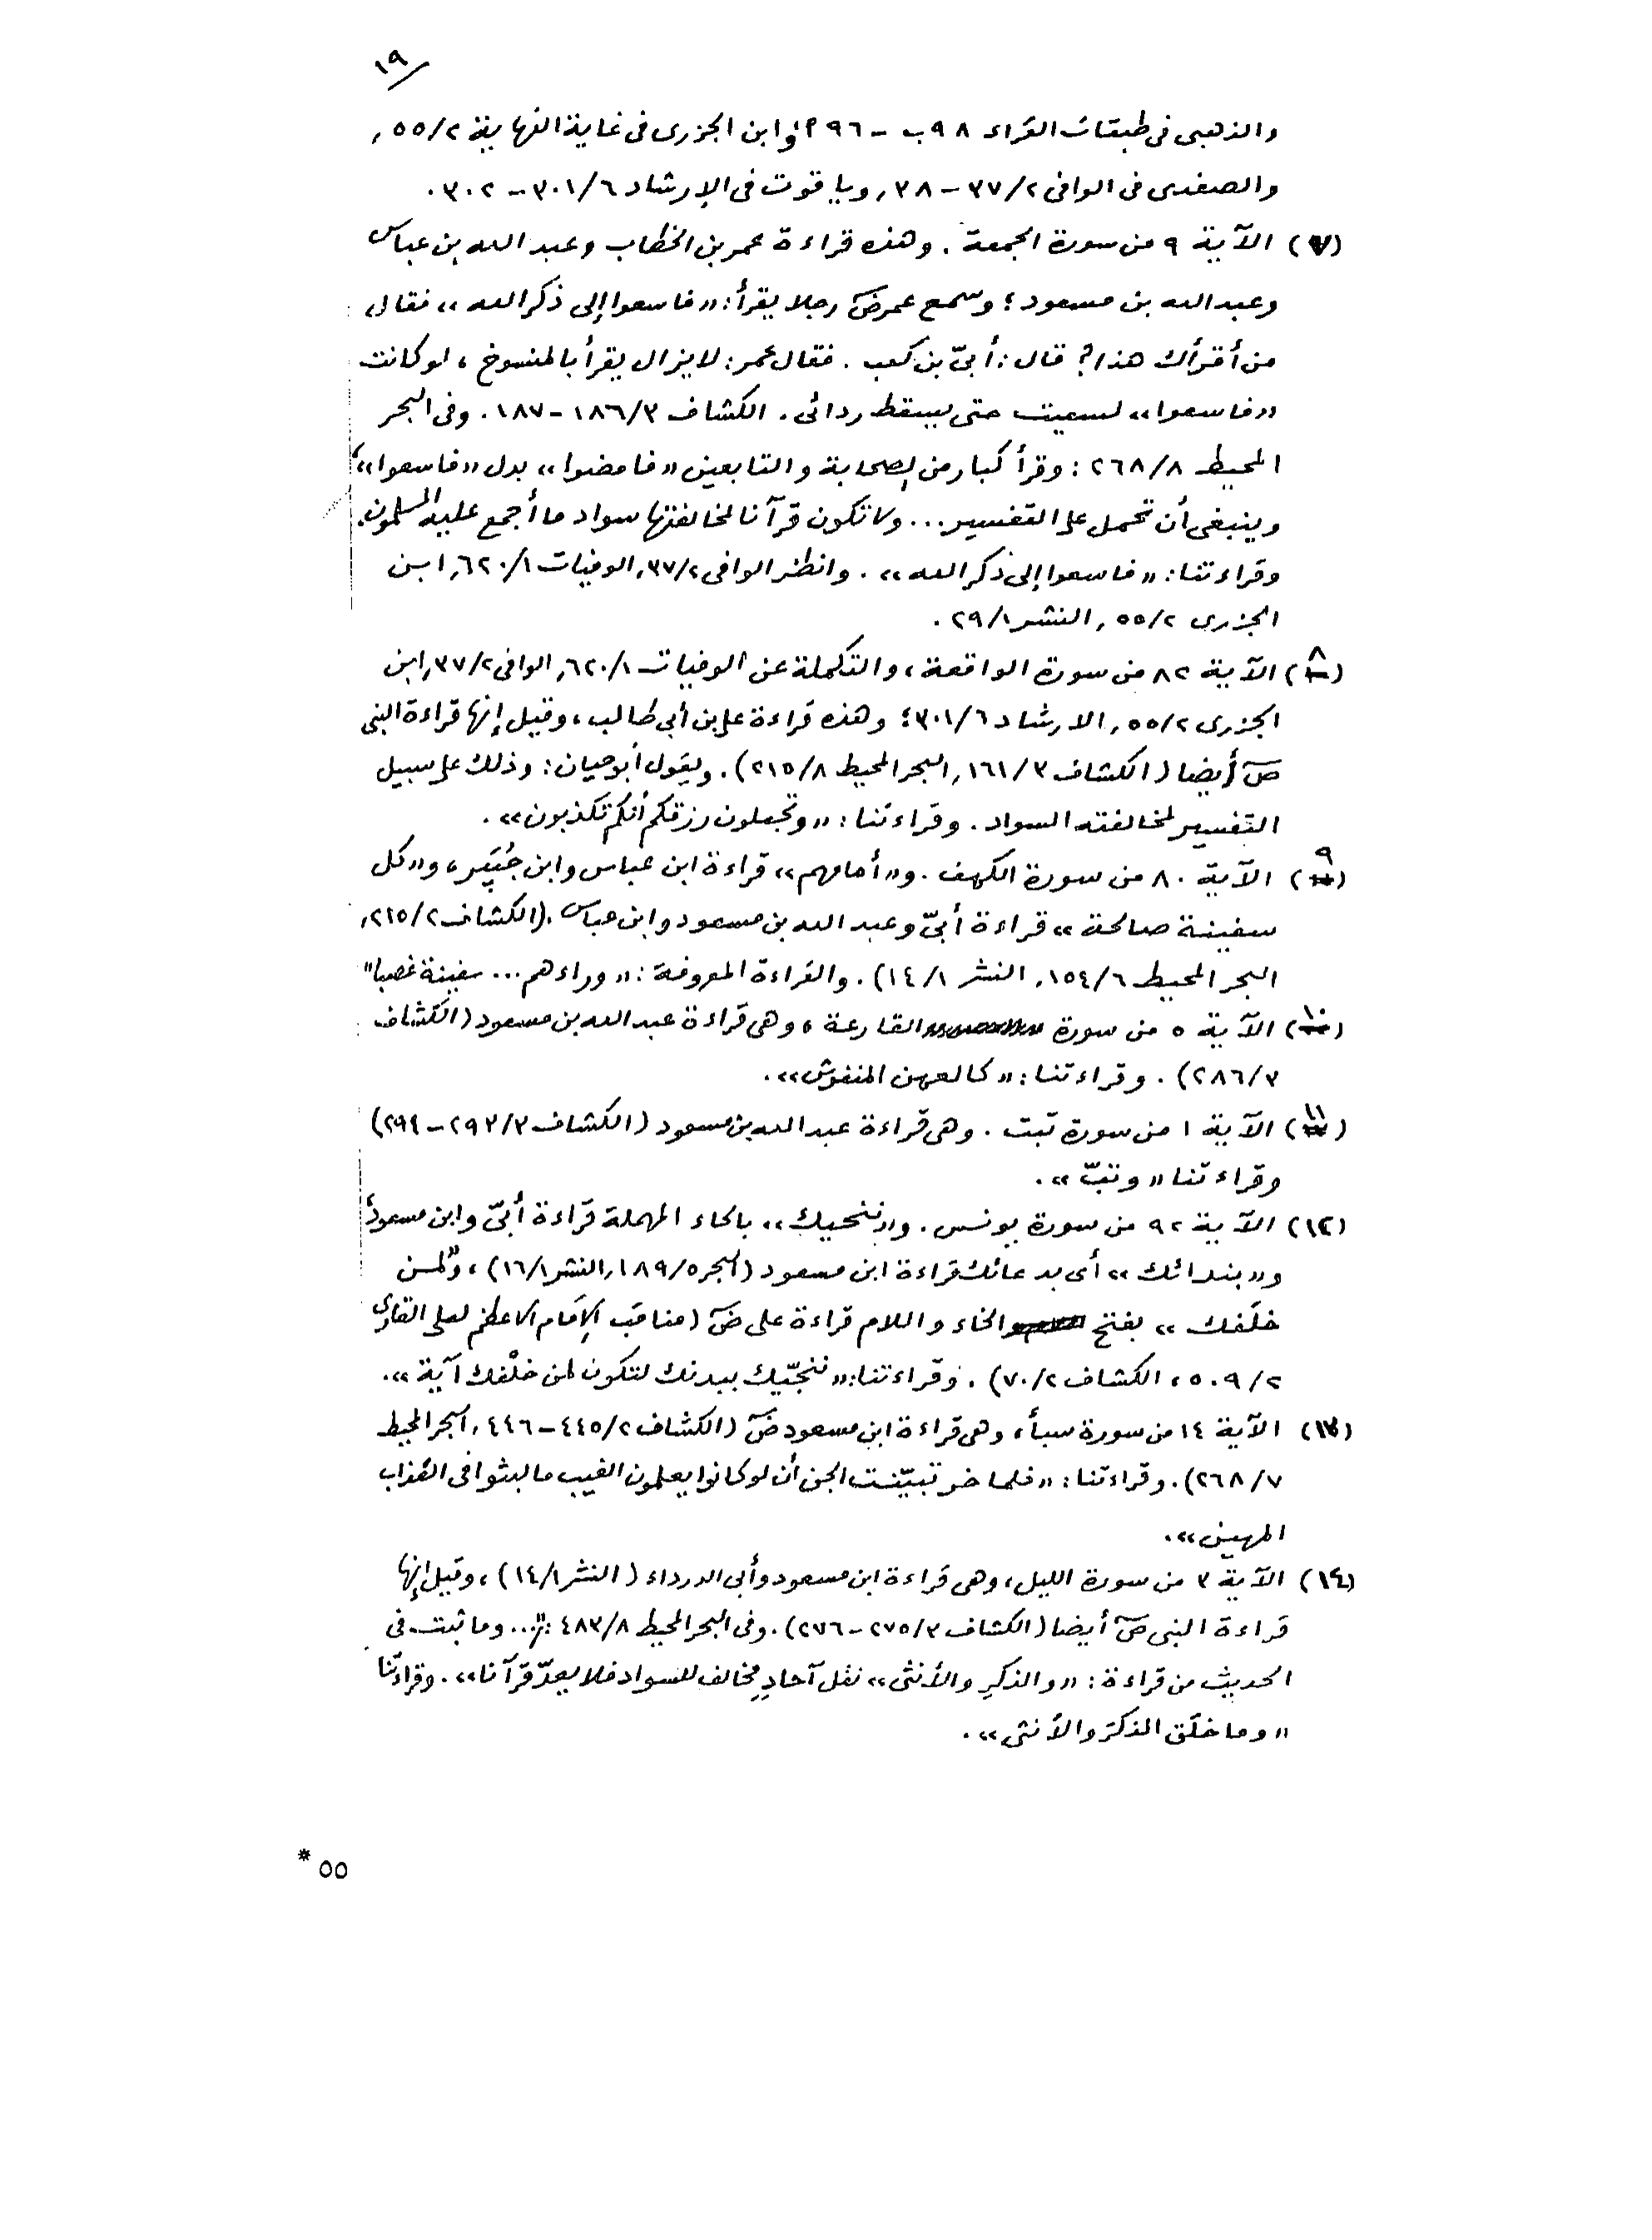 ١٩
والذهبى فى طبقات القراء ٩٨ب - ٩٦أ، وابن الجزرى فى غاية النهاية ٥٥/٢,
والصفدى فى الوافى ٣٧/٢ - ٣٨, وياقوت فى الإرشاد ٣٠١/٦ - ٣٠٢.
(٧) الآية ٩ من سورة الجمعة. وهذه قراءة عمر بن الخطاب وعبد الله بن عباس
وعبد الله بن مسعود؛ وسمع عمر ضَ رجلا يقرأ: «فاسعوا إلى ذكر الله» فقال،
من أقرأك هذا؟ قال: أبىّ بن كعب. فقال عمر: لا يزال يقرأ بالمنسوخ، لو كانت
«فاسعوا» لسعيت حتى يسقط ردائى. الكشاف ١٨٦/٣ - ١٨٧. وفى البحر
المحيط ٢٦٨/٨: وقرأ كبار من الصحابة والتابعين «فامضوا» بدل «فاسعوا»،
وينبغى أن تحمل على التفسير... ولا تكون قرآنا لمخالفتها سواد ما أجمع عليه المسلمون.
وقراءتنا: «فاسعوا إلى ذكر الله». وانظر الوافى ٣٧/٢, الوفيات ٦٢٠/١, ابن
الجزرى ٥٥/٢, النشر ٢٩/١.
(٨) الآية ٨٢ من سورة الواقعة، والتكملة عن الوفيات ٦٢٠/١, الوافى ٣٧/٢, ابن
الجزرى ٥٥/٢, الارشاد ٣٠١/٦؛ وهذه قراءة على بن أبى طالب، وقيل إنها قراءة النبى
صَ أيضا (الكشاف ١٦١/٣, البحر المحيط ٢١٥/٨). ويقول أبو حيان: وذلك على سبيل
التفسير لمخالفته السواد. وقراءتنا: «وتجعلون رزقكم أنكم تكذبون».
(٩) الآية ٨٠ من سورة الكهف. و«أمامهم» قراءة ابن عباس وابن جُبَير، و«كل
سفينة صالحة» قراءة أبىّ وعبد الله بن مسعود وابن عباس. (الكشاف ٢١٥/٢,
البحر المحيط ١٥٤/٦, النشر ١٤/١). والقراءة المعروفة: «وراءهم... سفينة غصبا"
(١٠) الآية ٥ من سورة القارعة، وهى قراءة عبد الله بن مسعود (الكشاف
٢٨٦/٣). وقراءتنا: «كالعهن المنفوش».
(١١) الآية ١ من سورة تبت. وهى قراءة عبد الله بن مسعود (الكشاف ٢٩٣/٣ - ٢٩٤)
وقراءتنا «وتبّ».
(١٢) الآية ٩٢ من سورة يونس. و«ننحيك» بالحاء المهملة قراءة أبىّ وابن مسعود،
و«بندائك» أى بدعائك قراءة ابن مسعود (البحر ١٨٩/٥, النشر ١٦/١)، و"لمن
خلَفك» بفتح الخاء واللام قراءة على ضَ (مناقب الإمام الاعظم لعلى القارى
٥٠٩/٢، الكشاف ٧٠/٢). وقراءتنا: «ننجّيك ببدنك لتكون لمن خلْفك آية».
(١٣) الآية ١٤ من سورة سبأ، وهى قراءة ابن مسعود ضَ (الكشاف ٤٤٥/٢ - ٤٤٦, البحر المحيط
٢٦٨/٧). وقراءتنا: «فلما خر تبيّنت الجن أن لو كانوا يعلمون الغيب ما لبثوا فى العذاب
المهين».
(١٤) الآية ٣ من سورة الليل، وهى قراءة ابن مسعود وأبى الدرداء (النشر ١٤/١)، وقيل إنها
قراءة النبى صَ أيضا (الكشاف ٢٧٥/٣ - ٢٧٦). وفى البحر المحيط ٤٨٣/٨: «... وما ثبت فى
الحديث من قراءة: «والذكرِ والأنثى» نقل آحادٍ مخالف للسواد فلا يعدّ قرآنا». وقراءتنا
«وما خلَق الذكَرَ والأنثى».
٥٥ *